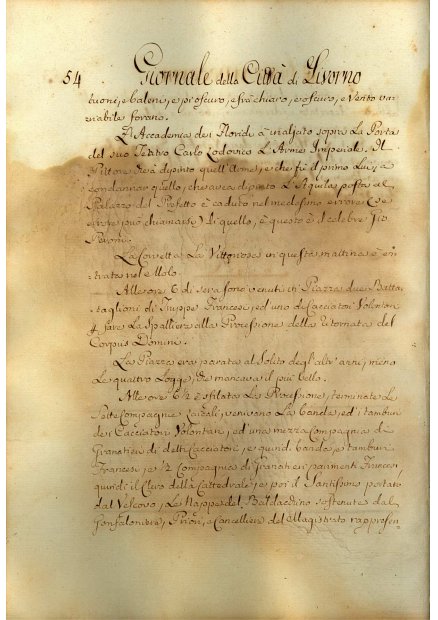 54 Giornale della Città di Livorno
tuoni, e baleni, e proscuro, e frà chiaro, e oscuro, e Vento va-
riabile forano.
L'Accademia dei Floridi à inalzato sopra La Porta
del suo Teatro Carlo Lodovico L'Arme Imperiale. Il
Pittore che à dipinto quell'Arme, e che fù il primo Lui, a
condannar quello, che avea dipinto L'Aquila posta al
Palazzo del Prefetto è caduto nel medesimo errore (se
errore può chiamarsi) di quello, e questo è il celebre Gio
Peroni.
La Corvetta La Vittoriosa in questa mattina è en-
trata nel Molo.
Alle ore 6 di sera sono venuti in Piazza due Batta-
taglioni di Truppe Francesi, ed uno di Cacciatori Volontari
p fare La Spalliera alla Processione della ritornata del
Corpus Domini.
La Piazza era parata al Solito degl'altr'anni, meno
Le quattro Logge, che mancava il più bello.
Alle ore 6 1/2 è sfilata La Processione, terminate Le
Sette Compagnie Laicali, venivano La banda, ed i tamburi
dei Cacciatori Volontari, ed una mezza Compagnia di
Granatieri di detti Cacciatori, e quindi banda, e tamburi
Francesi, e 1/2 Compagnia di Granatieri parimenti Francesi,
quindi il Clero della Cattedrale, e poi il Santissimo portato
dal Vescovo, Le Nappe del Baldacchino sostenute dal
Gonfaloniere, Priori, e Cancelliere del Magistrato rappresen-